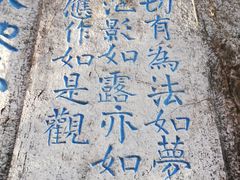 切有為法如夢
泡影如露亦如
應作如是觀